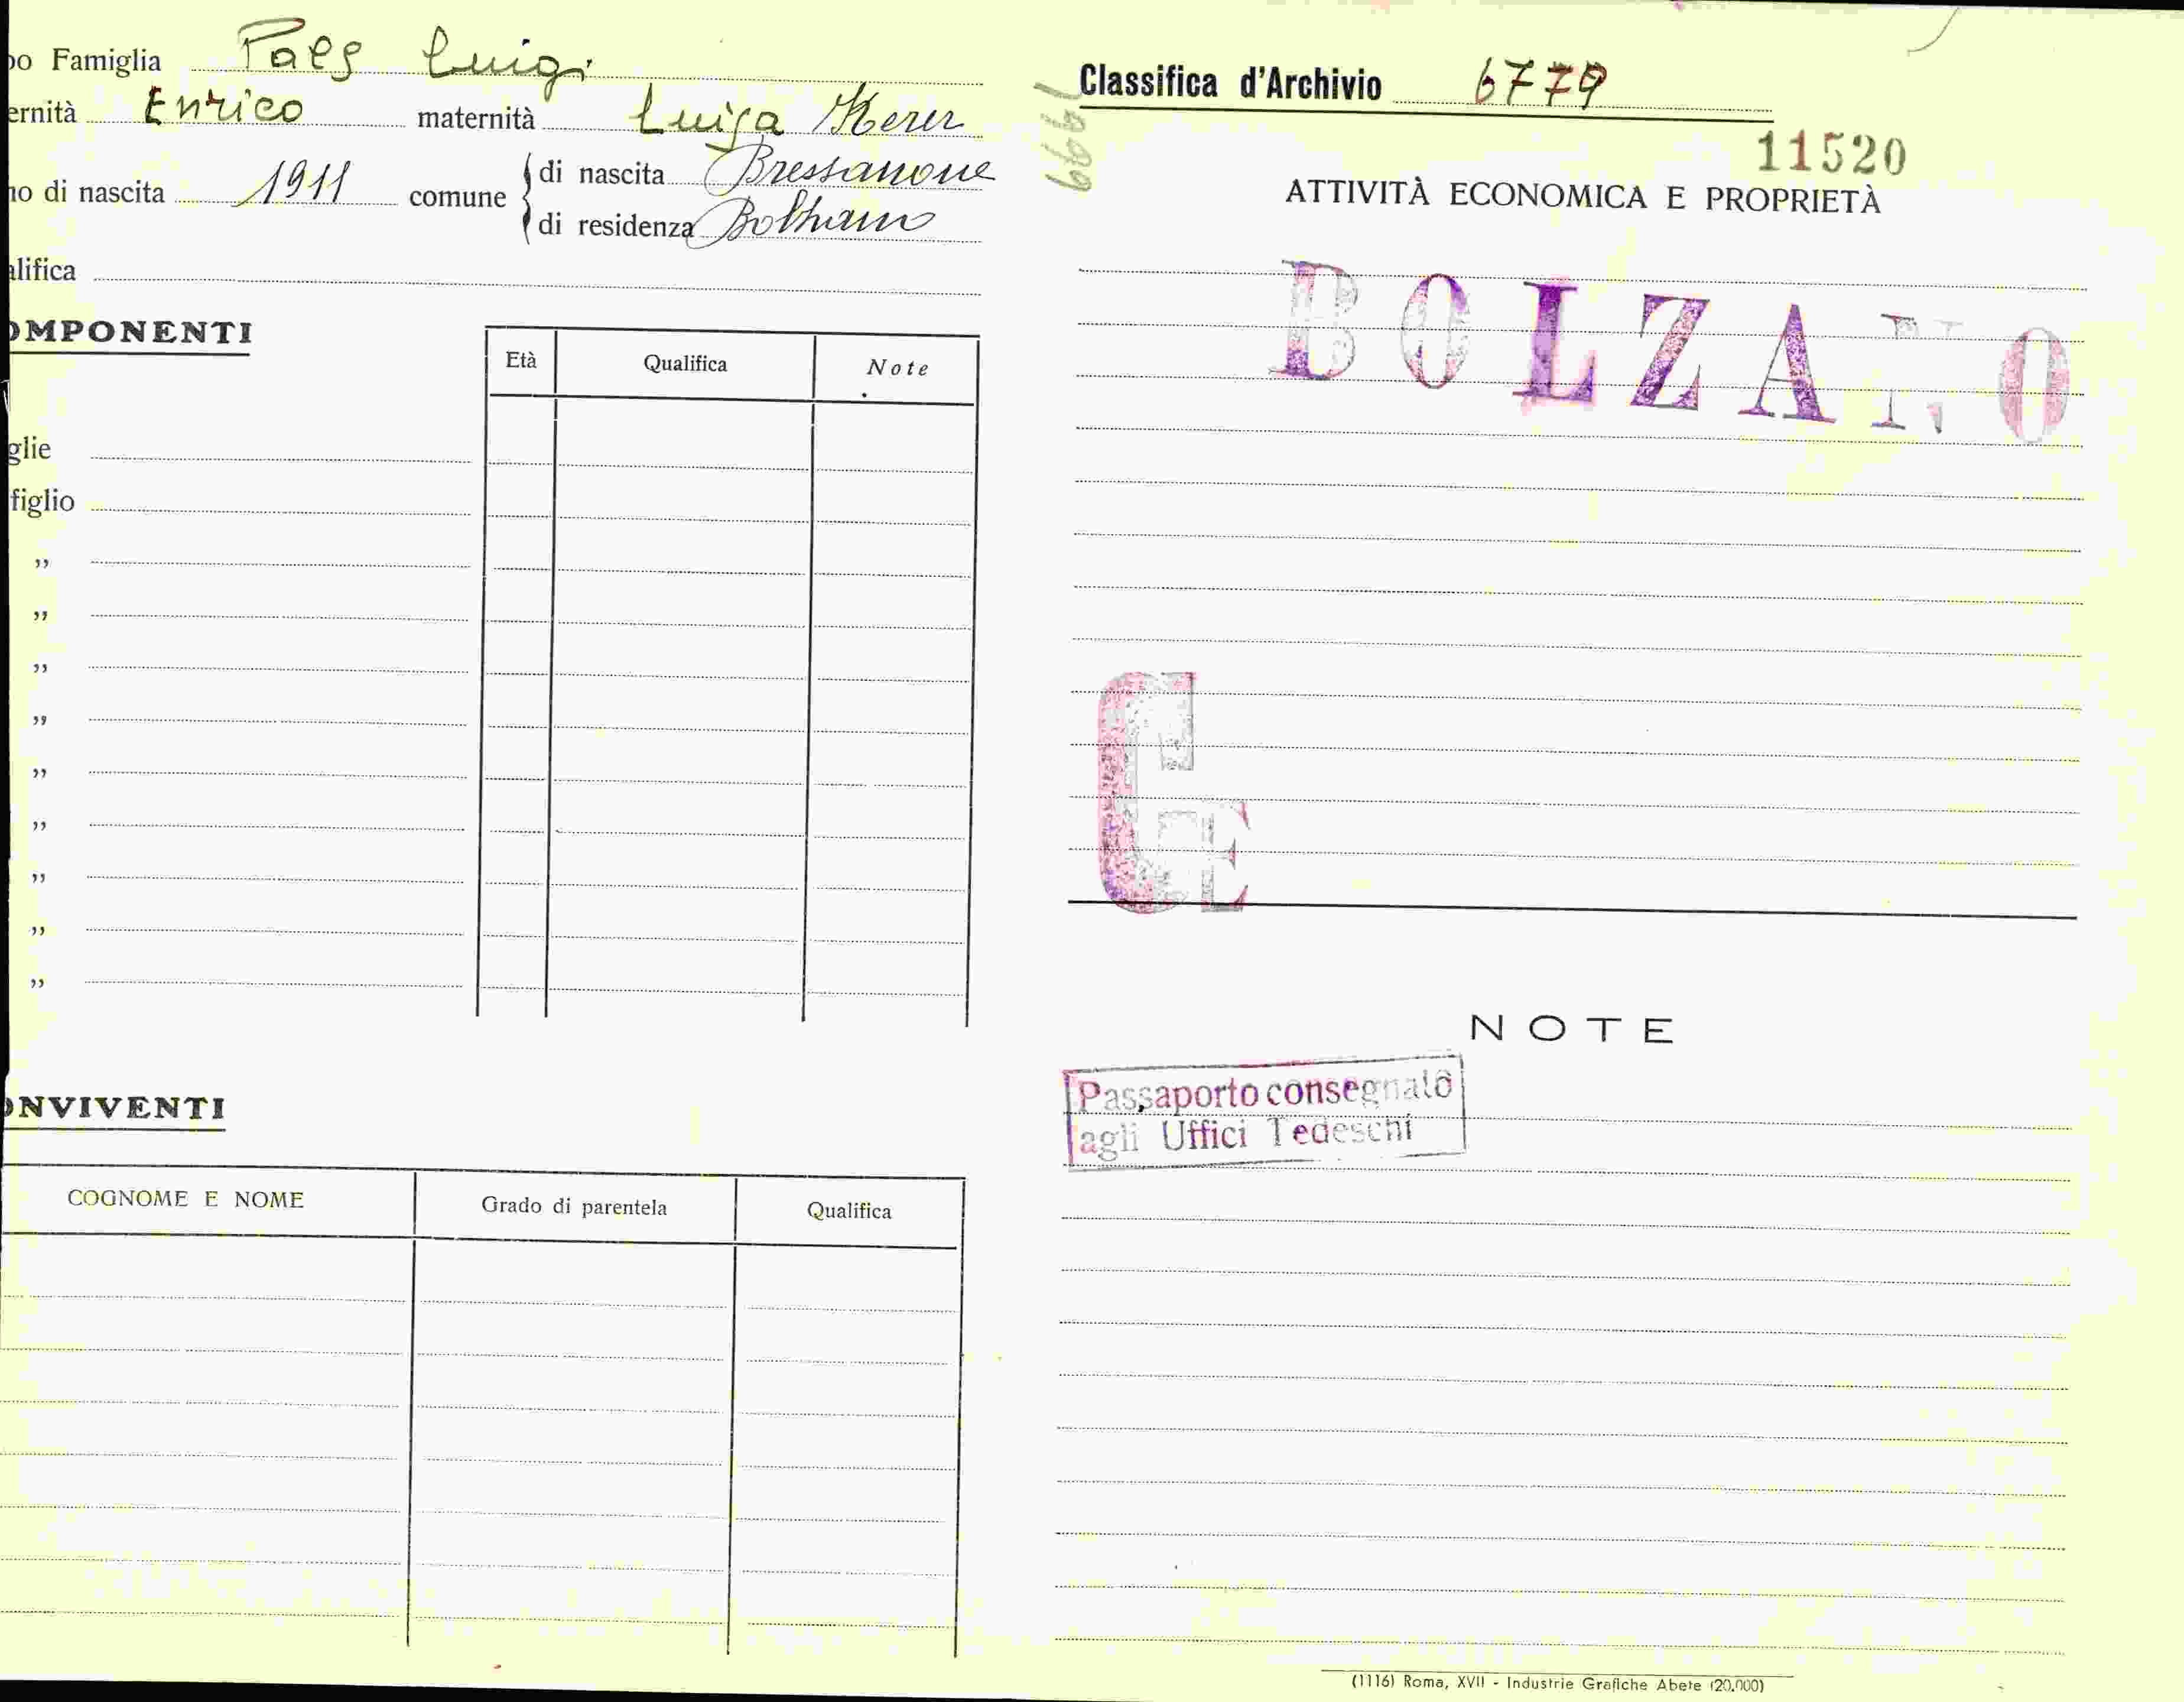 po Famiglia Paes Luigi
ernità Enrico maternità Luisa Kerer
no di nascita 1911 comune di nascita Bressanone
di residenza Bolzano
alifica
OMPONENTI
Età Qualifica Note
glie
figlio
”
”
”
”
”
”
”
”
”
ONVIVENTI
COGNOME E NOME Grado di parentela Qualifica
Classifica d'Archivio 6779
11520
ATTIVITÀ ECONOMICA E PROPRIETÀ
BOLZANO
CE
NOTE
Passaporto consegnato
agli Uffici Tedeschi
(1116) Roma, XVII - Industrie Grafiche Abete (20.000)